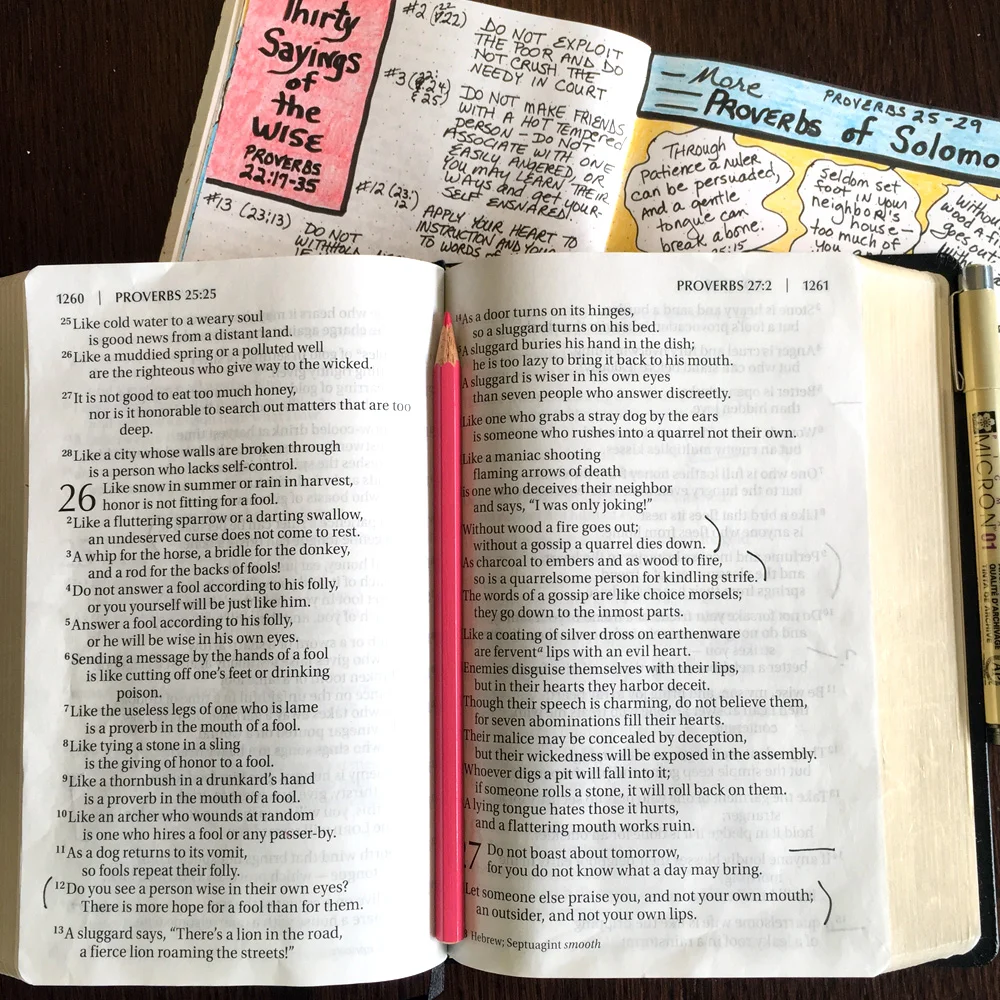 Thirty
Sayings
of
the
WISE
PROVERBS
22:17-35
#2 (22:22)
DO NOT EXPLOIT
THE POOR AND DO
NOT CRUSH THE
NEEDY IN COURT
#3 (22:24
& 25)
DO NOT MAKE FRIENDS
WITH A HOT TEMPERED
PERSON – DO NOT
ASSOCIATE WITH ONE
EASILY ANGERED, OR
YOU MAY LEARN THEIR
WAYS and get YOUR-
SELF ENSNARED!
#12 (23:
12)
APPLY YOUR HEART TO
INSTRUCTION AND YOUR
TO WORDS OF
#13 (23:13)
DO NOT
WITHHOLD
More
PROVERBS 25-29
PROVERBS of Solomo
THROUGH
patience a ruler
can be persuaded,
and a gentle
tongue can
break a bone.
25:15
Seldom set
foot in your
neighbor's
house—
too much of
you and
Without
wood a fi
goes out-
1260 | PROVERBS 25:25
25 Like cold water to a weary soul
is good news from a distant land.
26 Like a muddied spring or a polluted well
are the righteous who give way to the wicked.
27 It is not good to eat too much honey,
nor is it honorable to search out matters that are too
deep.
28 Like a city whose walls are broken through
is a person who lacks self-control.
26 Like snow in summer or rain in harvest,
honor is not fitting for a fool.
2 Like a fluttering sparrow or a darting swallow,
an undeserved curse does not come to rest.
3 A whip for the horse, a bridle for the donkey,
and a rod for the backs of fools!
4 Do not answer a fool according to his folly,
or you yourself will be just like him.
5 Answer a fool according to his folly,
or he will be wise in his own eyes.
6 Sending a message by the hands of a fool
is like cutting off one's feet or drinking
poison.
7 Like the useless legs of one who is lame
is a proverb in the mouth of a fool.
8 Like tying a stone in a sling
is the giving of honor to a fool.
9 Like a thornbush in a drunkard's hand
is a proverb in the mouth of a fool.
10 Like an archer who wounds at random
is one who hires a fool or any passer-by.
11 As a dog returns to its vomit,
so fools repeat their folly.
12 Do you see a person wise in their own eyes?
There is more hope for a fool than for them.
13 A sluggard says, "There's a lion in the road,
a fierce lion roaming the streets!"
PROVERBS 27:2 | 1261
14 As a door turns on its hinges,
so a sluggard turns on his bed.
A sluggard buries his hand in the dish;
he is too lazy to bring it back to his mouth.
A sluggard is wiser in his own eyes
than seven people who answer discreetly.
Like one who grabs a stray dog by the ears
is someone who rushes into a quarrel not their own.
Like a maniac shooting
flaming arrows of death
is one who deceives their neighbor
and says, "I was only joking!"
Without wood a fire goes out;
without a gossip a quarrel dies down.
As charcoal to embers and as wood to fire,
so is a quarrelsome person for kindling strife.
The words of a gossip are like choice morsels;
they go down to the inmost parts.
Like a coating of silver dross on earthenware
are fervent a lips with an evil heart.
Enemies disguise themselves with their lips,
but in their hearts they harbor deceit.
Though their speech is charming, do not believe them,
for seven abominations fill their hearts.
Their malice may be concealed by deception,
but their wickedness will be exposed in the assembly.
Whoever digs a pit will fall into it;
if someone rolls a stone, it will roll back on them.
A lying tongue hates those it hurts,
and a flattering mouth works ruin.
7 Do not boast about tomorrow,
for you do not know what a day may bring.
Let someone else praise you, and not your own mouth;
an outsider, and not your own lips.
Hebrew; Septuagint smooth
MICRON 01